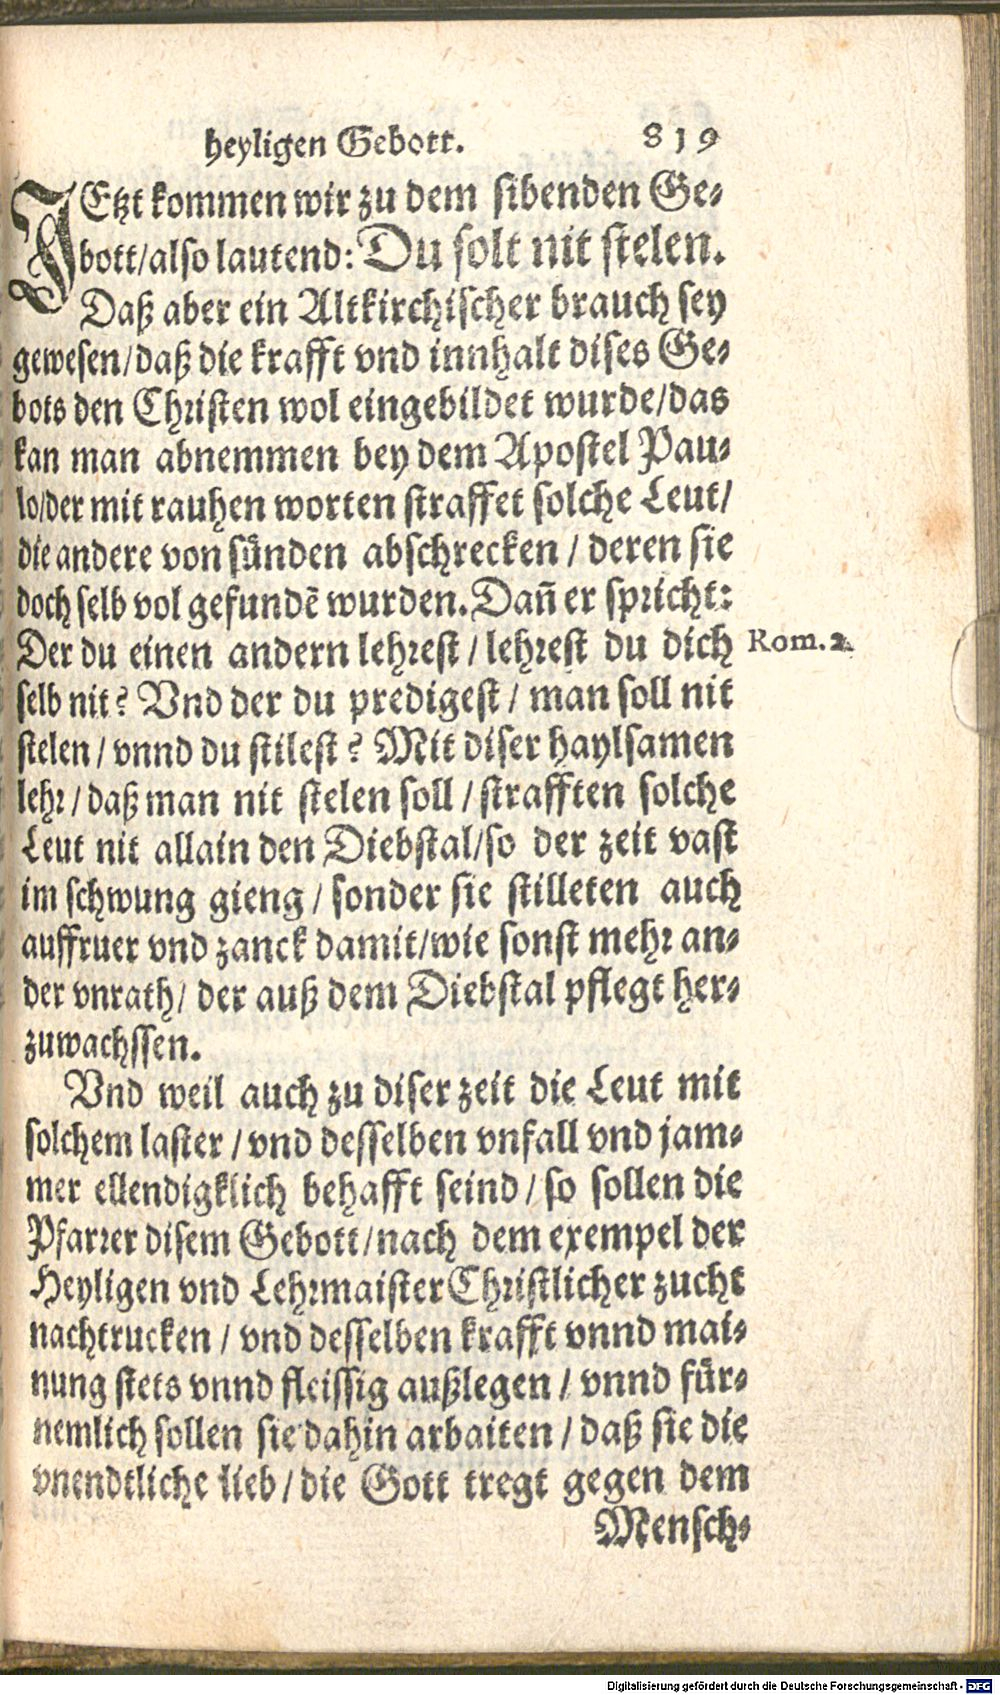 heyligen Gebott. 819
JEtzt kommen wir zu dem sibenden Ge-
bott/also lautend: Du solt nit stelen.
Daß aber ein Altkirchischer brauch sey
gewesen/daß die krafft vnd innhalt dises Ge-
bots den Christen wol eingebildet wurde/das
kan man abnemmen bey dem Apostel Pau-
lo/der mit rauhen worten straffet solche Leut/
die andere von sünden abschrecken / deren sie
doch selb vol gefundē wurden. Dañ er spricht:
Der du einen andern lehrest / lehrest du dich
Rom. 2.
selb nit? Vnd der du predigest / man soll nit
stelen / vnnd du stilest? Mit diser haylsamen
lehr / daß man nit stelen soll / strafften solche
Leut nit allain den Diebstal/so der zeit vast
im schwung gieng / sonder sie stilleten auch
auffruer vnd zanck damit/wie sonst mehr an-
der vnrath/ der auß dem Diebstal pflegt her-
zuwachssen.
Vnd weil auch zu diser zeit die Leut mit
solchem laster / vnd desselben vnfall vnd jam-
mer ellendigklich behafft seind / so sollen die
Pfarrer disem Gebott/nach dem exempel der
Heyligen vnd Lehrmaister Christlicher zucht
nachtrucken / vnd desselben krafft vnnd mai-
nung stets vnnd fleissig außlegen / vnnd für-
nemlich sollen sie dahin arbaiten / daß sie die
vnendtliche lieb / die Gott tregt gegen dem
Mensch-
Digitalisierung gefördert durch die Deutsche Forschungsgemeinschaft - DFG